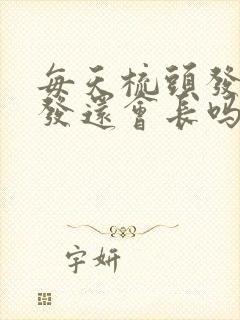 每天梳頭發
發還會長嗎
字妍